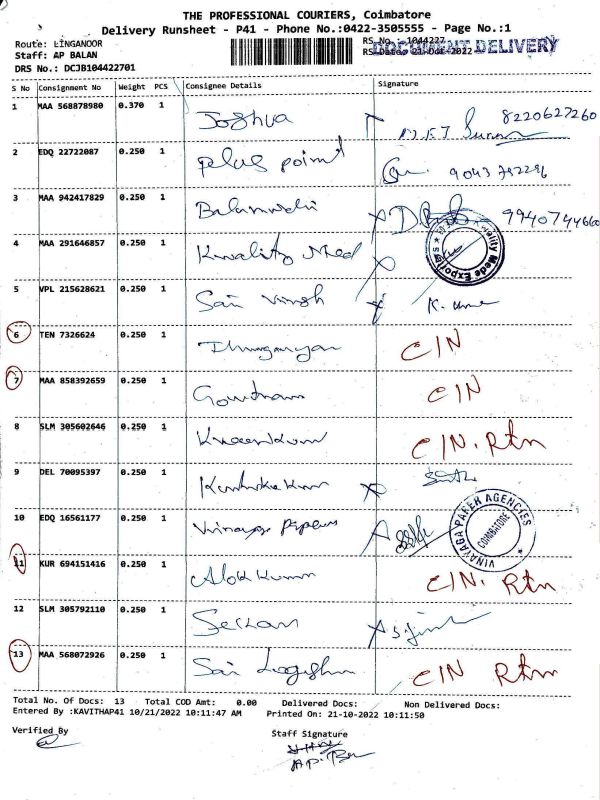 THE PROFESSIONAL COURIERS, Coimbatore
Delivery Runsheet - P41 - Phone No.:0422-3505555 - Page No.:1
Route: LINGANOOR
RS No. 1044227
DOCUMENT DELIVERY
Staff: AP BALAN
RS Date: 21-Oct-2022
DRS No.: DCJB104422701
S No Consignment No Weight PCS Consignee Details Signature
1 MAA 568878980 0.370 1 Joshua 8220627260
2 EDQ 22722087 0.250 1 plus point 9043792296
3 MAA 942417829 0.250 1 9940744660
4 MAA 291646857 0.250 1 Kwality Med
5 VPL 215628621 0.250 1 Sai K.
6 TEN 7326624 0.250 1 C/N
7 MAA 858392659 0.250 1 Goutham C/N
8 SLM 305602646 0.250 1 C/N. Rtn
9 DEL 70095397 0.250 1
10 EDQ 16561177 0.250 1 Vinayaga Papers
VINAYAGA PAPER AGENCIES COIMBATORE
11 KUR 694151416 0.250 1 Alok Kumar C/N. Rtn
12 SLM 305792110 0.250 1
13 MAA 568072926 0.250 1 Sai C/N Rtn
Total No. Of Docs: 13 Total COD Amt: 0.00 Delivered Docs: Non Delivered Docs:
Entered By :KAVITHAP41 10/21/2022 10:11:47 AM Printed On: 21-10-2022 10:11:50
Verified By
Staff Signature